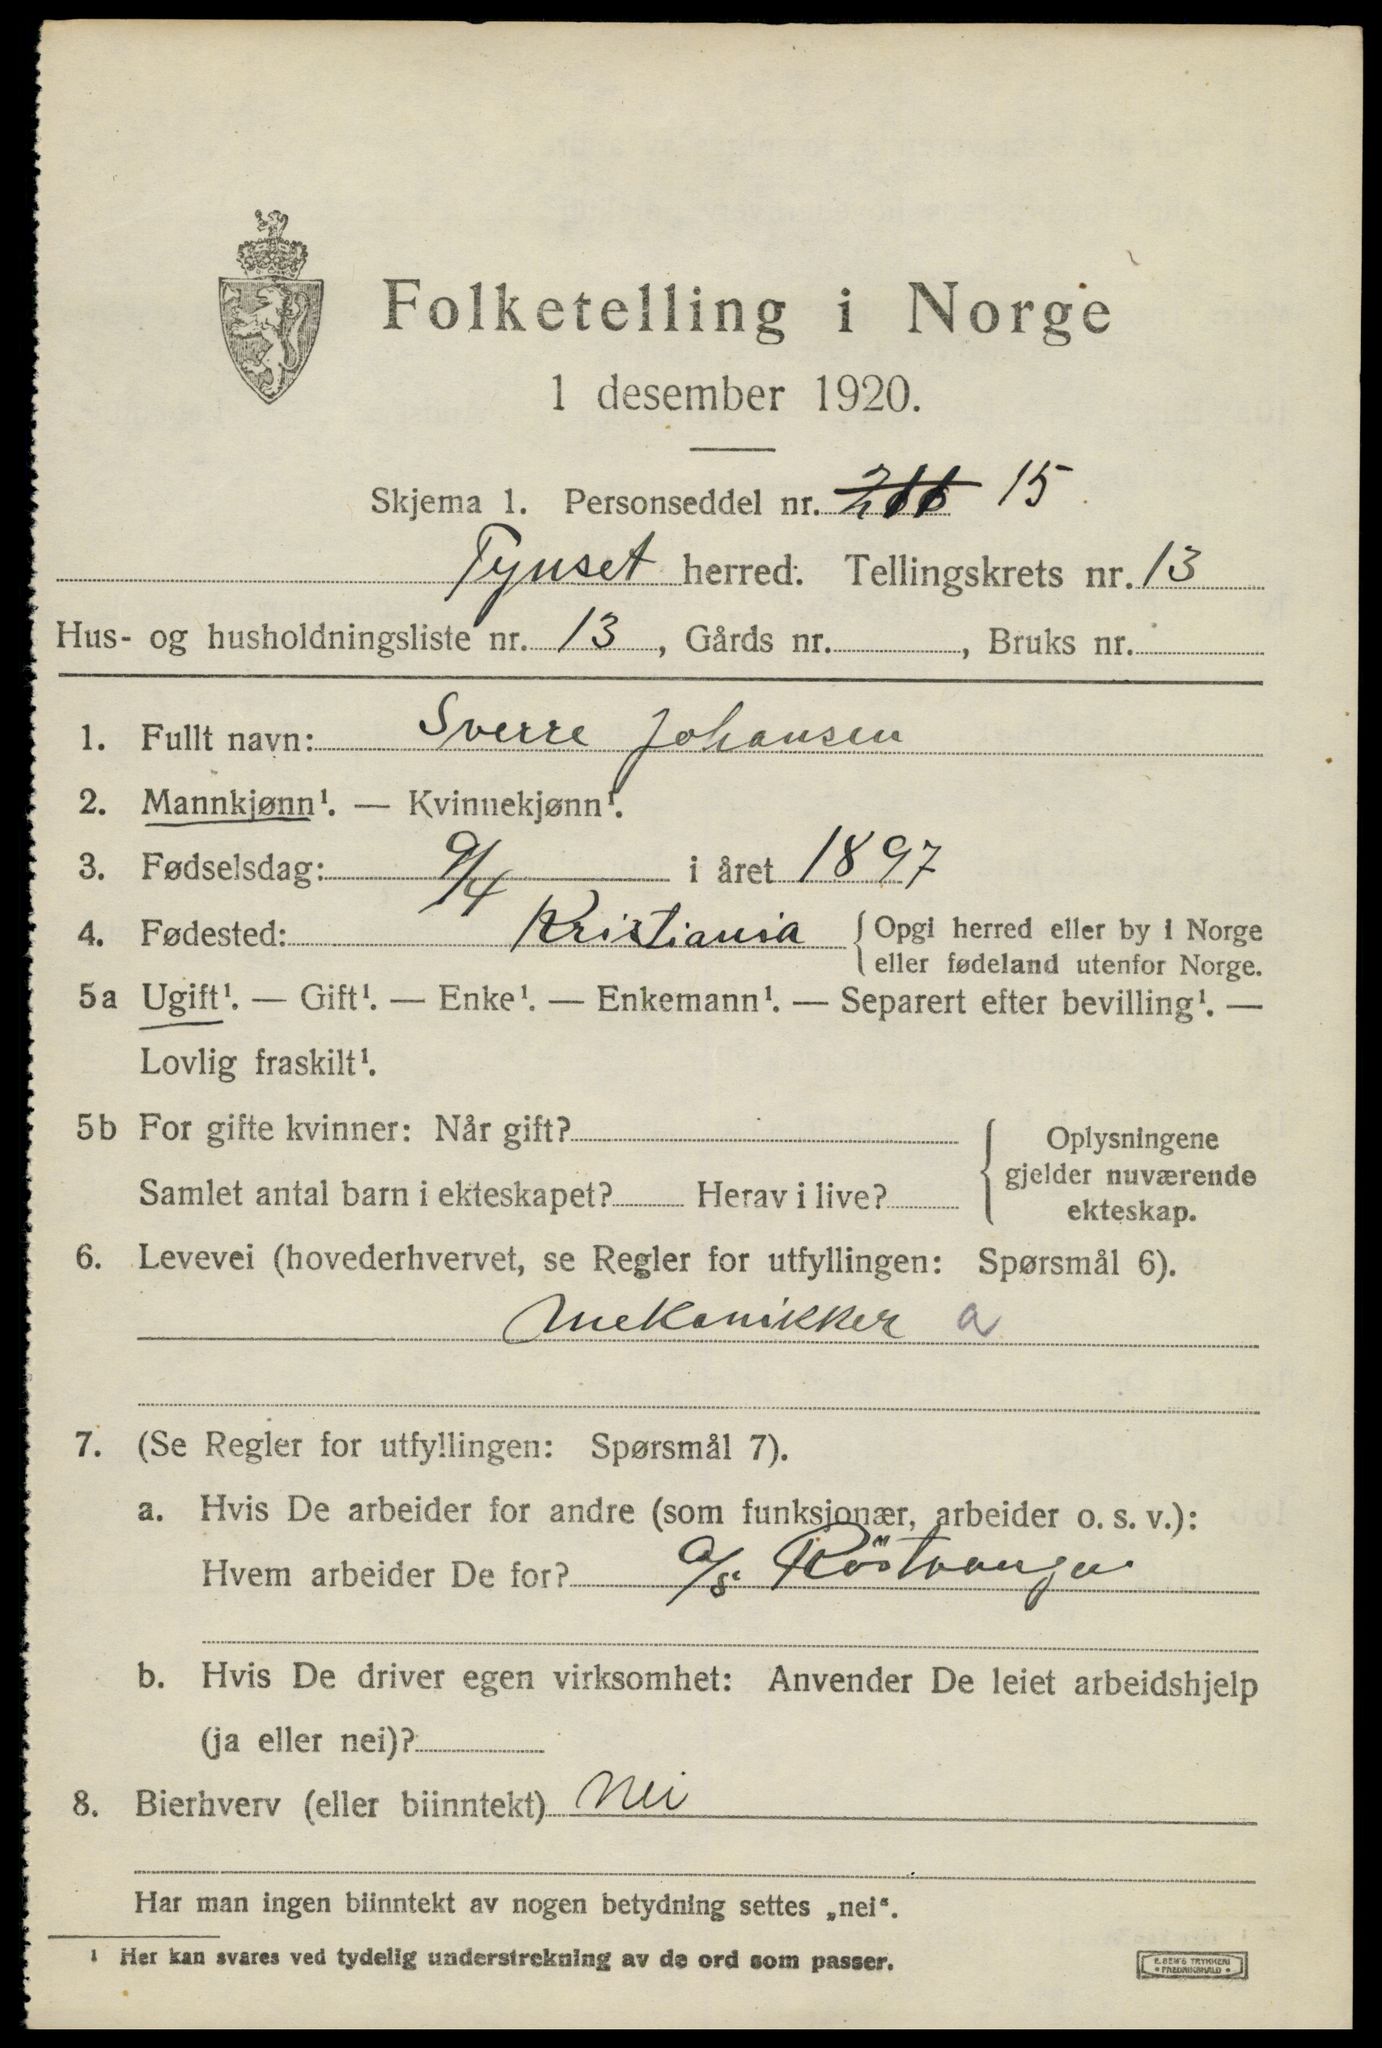 Folketelling i Norge
1 desember 1920.
Skjema 1. Personseddel nr. 266 15
Tynset herred. Tellingskrets nr. 13
Hus- og husholdningsliste nr. 13, Gårds nr. , Bruks nr.
1. Fullt navn: Sverre Johansen
2. Mannkjønn¹. — Kvinnekjønn¹.
3. Fødselsdag: 9/4 i året 1897
4. Fødested: Kristiania { Opgi herred eller by i Norge
eller fødeland utenfor Norge.
5a Ugift¹. — Gift¹. — Enke¹. — Enkemann¹. — Separert efter bevilling¹. —
Lovlig fraskilt¹.
5b For gifte kvinner: Når gift? { Oplysningene
gjelder nuværende
Samlet antal barn i ekteskapet? Herav i live?
ekteskap.
6. Levevei (hovederhvervet, se Regler for utfyllingen: Spørsmål 6).
Mekanikker a
7. (Se Regler for utfyllingen: Spørsmål 7).
a. Hvis De arbeider for andre (som funksjonær, arbeider o. s. v.):
Hvem arbeider De for? a/s Röstvangen
b. Hvis De driver egen virksomhet: Anvender De leiet arbeidshjelp
(ja eller nei)?
8. Bierhverv (eller biinntekt) Nei
Har man ingen biinntekt av nogen betydning settes „nei“.
¹ Her kan svares ved tydelig understrekning av de ord som passer.
E. SEM'S TRYKKERI
• FREDRIKSHALD •